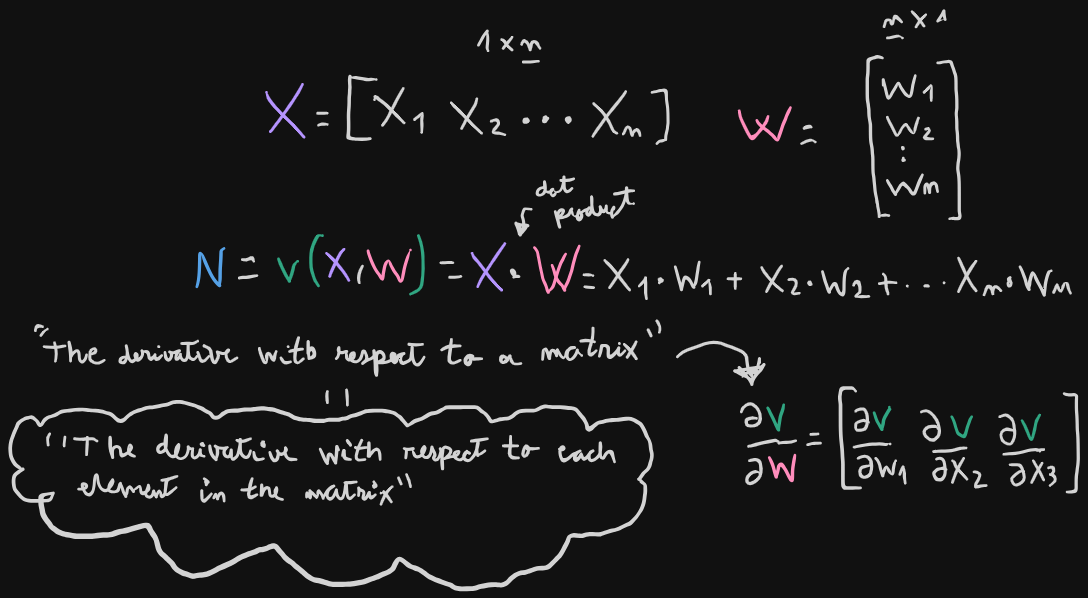 1 x n
n x 1
X = [X₁ X₂ ... Xₙ]
W =
[W₁
W₂
⋮
Wₙ]
dot
product
N = v(X,W) = X · W = X₁·W₁ + X₂·W₂ + ... Xₙ·Wₙ
"The derivative with respect to a matrix"
"The derivative with respect to each
element in the matrix"
∂v/∂W = [∂v/∂w₁ ∂v/∂X₂ ∂v/∂X₃]